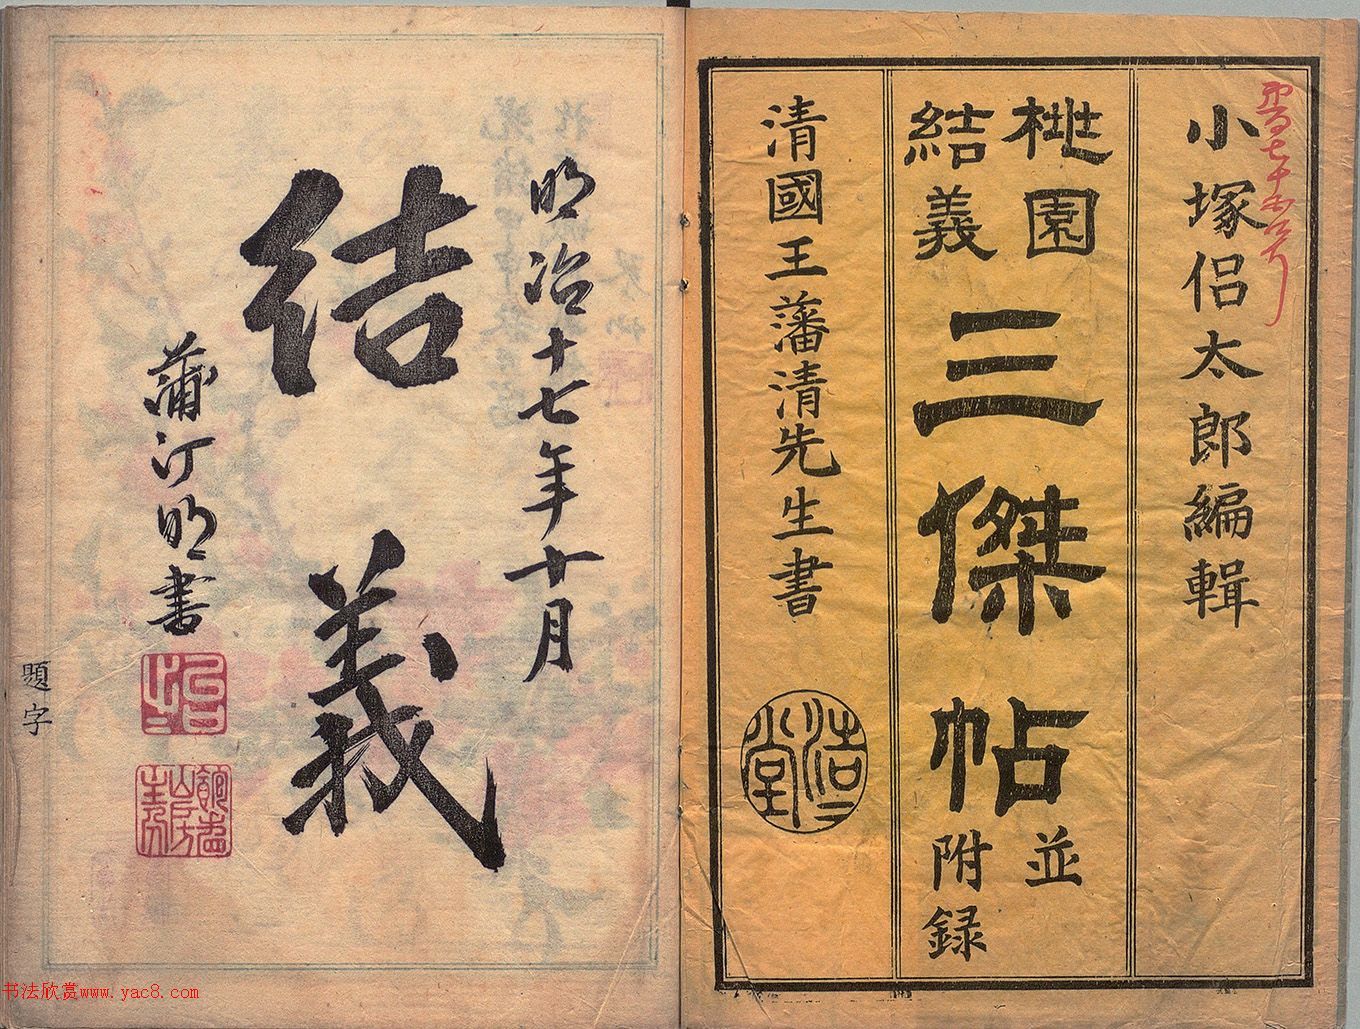 小塚侣太郎編輯
桃園
結義
三傑帖
並
附録
清國王藩清先生書
浩二堂
明治十七年十月
結義
蒲汀明書
題字
书法欣赏www.yac8.com